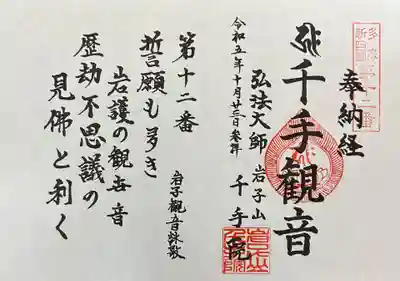 奉納経
千手観音
令和五年十月廿三日参拝
弘法大師
岩子山
千手院
第十二番
岩子観音詠歌
誓願も多き
岩護の観世音
歴劫不思議の
見佛と利く